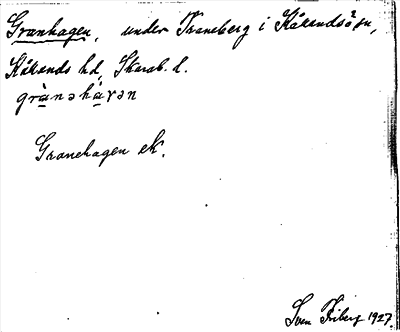 Granhagen, under Traneberg i Kållandsö sn,
Kållands hd, Skarab. l.
grànəhàvən
Granehagen ek.
Sven Friberg 1927.